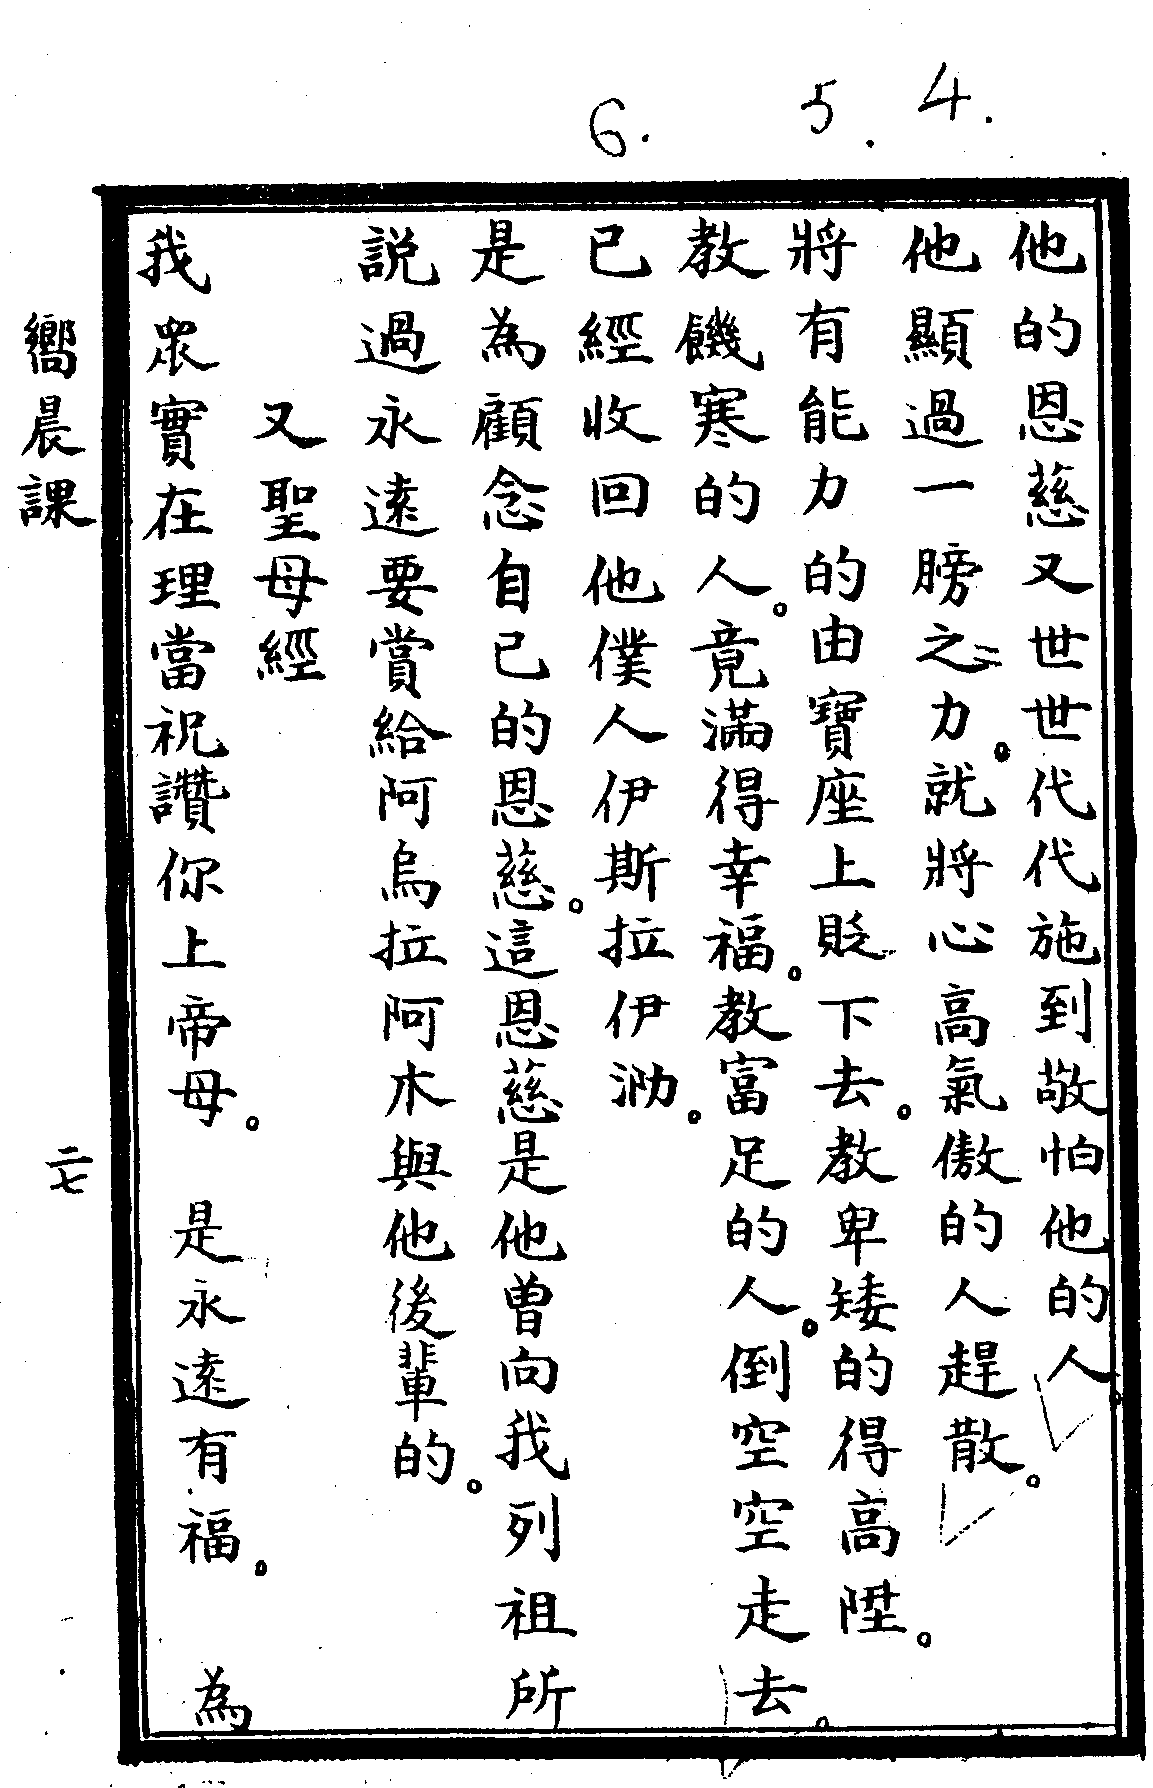 4.
5.
6.
他的恩慈又世世代代施到敬怕他的人。
他顯過一膀之力。就將心高氣傲的人趕散。
將有能力的由寶座上貶下去。教卑矮的得高陞。
教饑寒的人。竟滿得幸福。教富足的人。倒空空走去。
已經收回他僕人伊斯拉伊泐。
是為顧念自己的恩慈。這恩慈是他曾向我列祖所
說過永遠要賞給阿烏拉阿木與他後輩的。
又聖母經
我眾實在理當祝讚你上帝母。 是永遠有福。 為
嚮晨課
二七